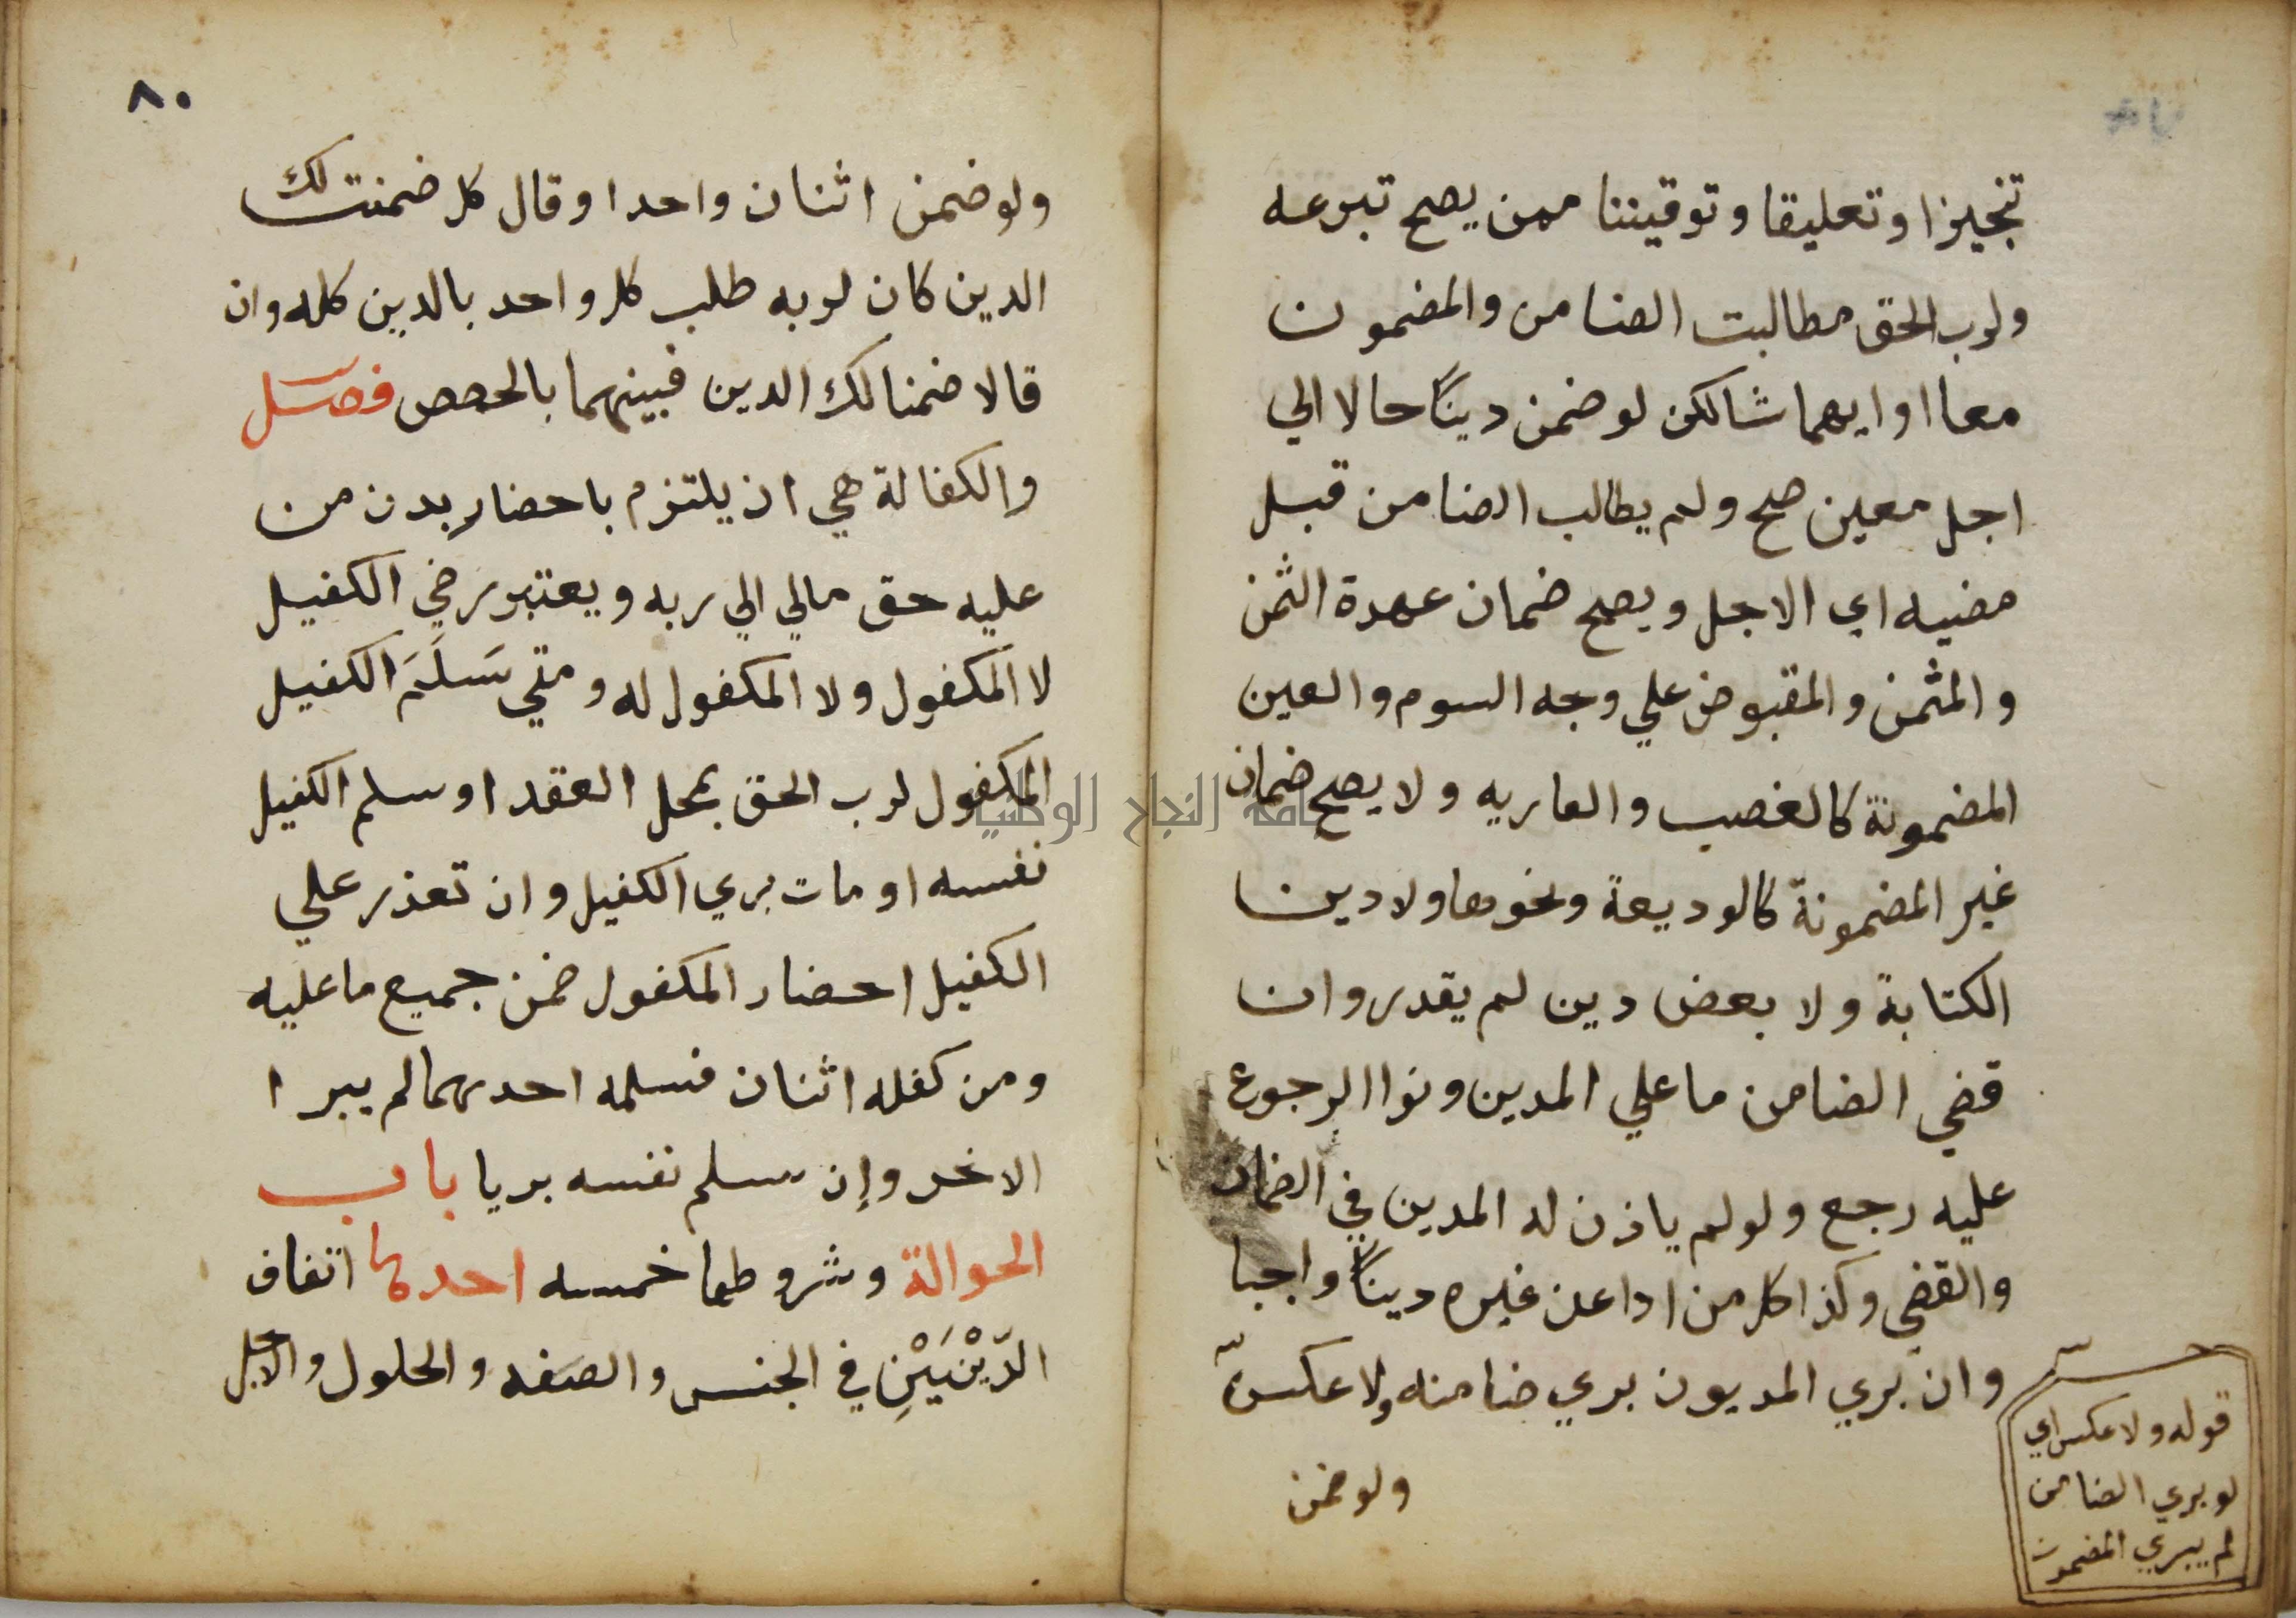 تنجيزا وتعليقا وتوقيتنا ممن يصح تبرعه
ولرب الحق مطالبت الضامن والمضمون
معا او ايهما شا لكن لو ضمن دينًا حالا الي
اجل معين صح ولم يطالب الضامن قبل
مضيه اي الاجل ويصح ضمان عهدة الثمن
والمثمن والمقبوض علي وجه السوم والعين
المضمونة كالغصب والعاريه ولا يصح ضمان
غير المضمونة كالوديعة ونحوها ولا دين
الكتابة ولا بعض دين لم يقدر وان
قضي الضامن ما علي المدين ونوا الرجوع
عليه رجع ولو لم ياذن له المدين في الضمان
والقضي وكذا كل من ادا عن غيره دينًا واجبا
وان بري المديون بري ضامنه ولا عكس
ولو ضمن
قوله ولا عكس اي
لو بري الضامن
لم يبري المضمون
٨٠
ولو ضمن اثنان واحدا وقال كل ضمنت لك
الدين كان لربه طلب كل واحد بالدين كله وان
قالا ضمنا لك الدين فبينهما بالحصص فصل
والكفالة هي ان يلتزم باحضار بدن من
عليه حق مالي الي ربه ويعتبر رضي الكفيل
لا المكفول ولا المكفول له ومتي سَلَّمَ الكفيل
المكفول لرب الحق بمحل العقد او سلم الكفيل
نفسه او مات بري الكفيل وان تعذر علي
الكفيل احضار المكفول ضمن جميع ما عليه
ومن كفله اثنان فسلمه احدهما لم يبرا
الاخر وإن سلم نفسه بريا باب
الحوالة وشروطها خمسه احدها اتفاق
الدّيْنَيْنِ في الجنس والصفه والحلول والاجل
جامعة النجاح الوطنية